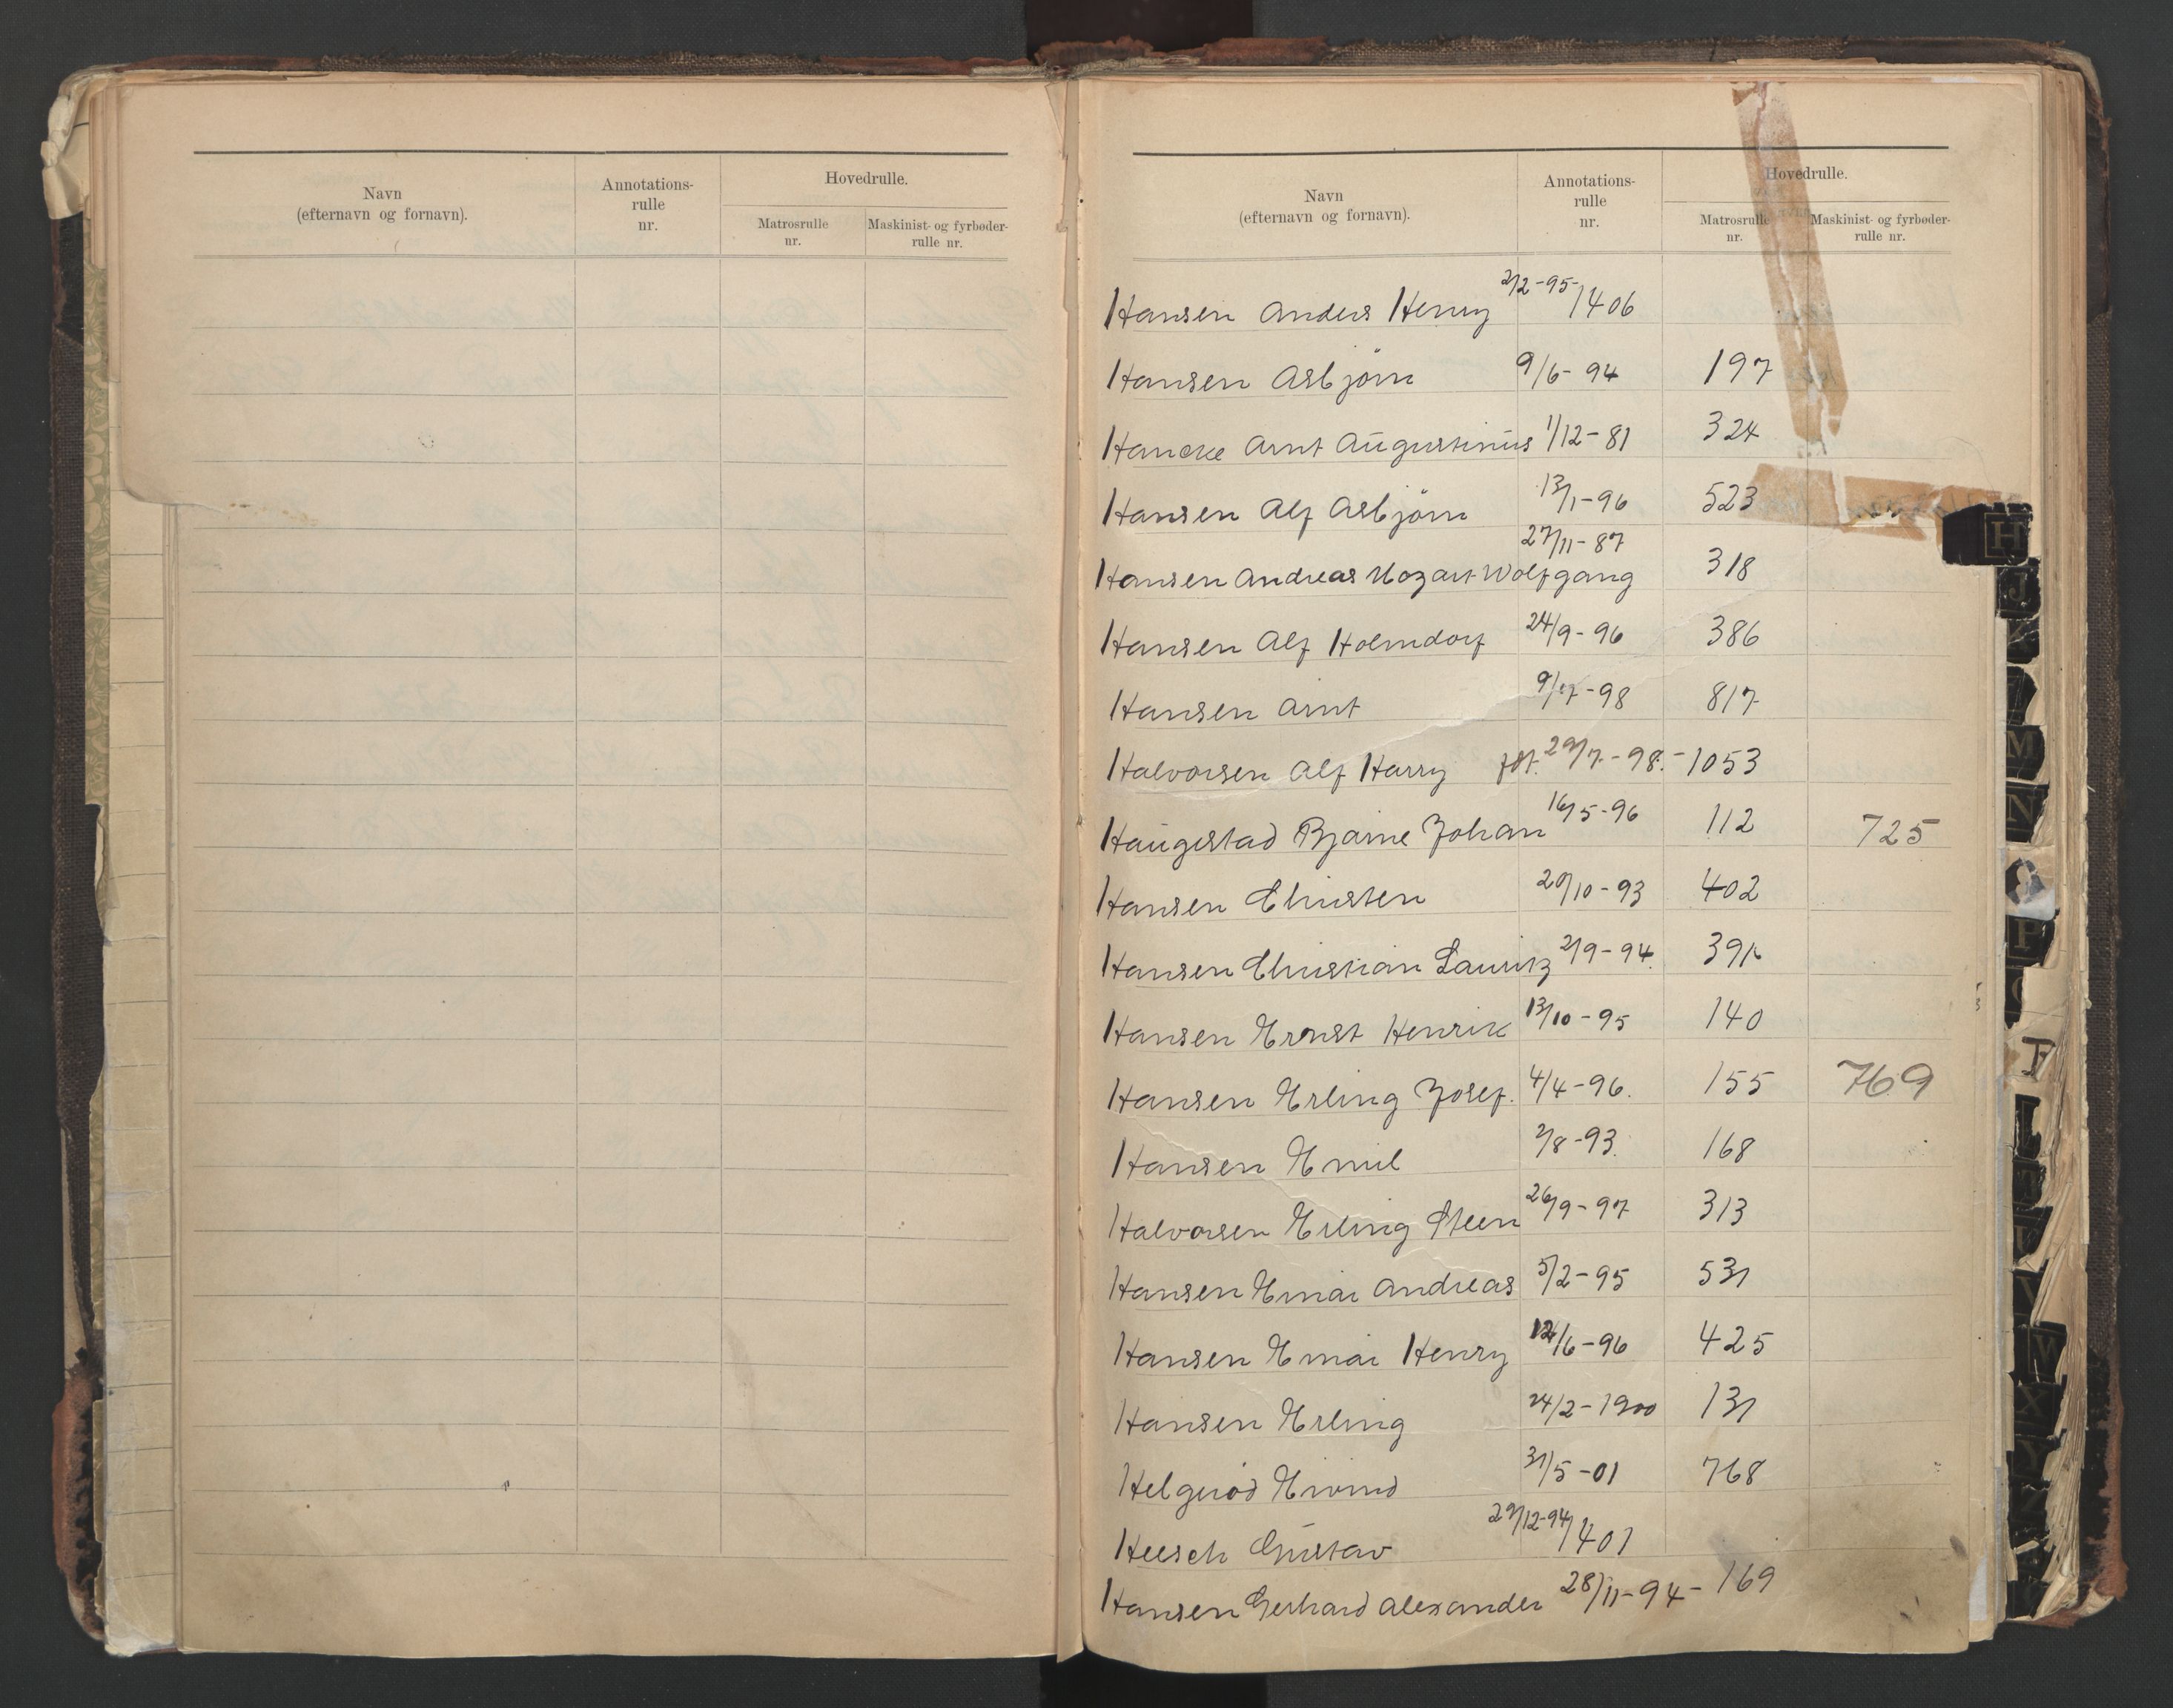 Navn
(efternavn og fornavn).
Annotations-
rulle
nr.
Hovedrulle.
Matrosrulle
nr.
Maskinist- og fyrbøder-
rulle nr.
Navn
(efternavn og fornavn).
Annotations-
rulle
nr.
Hovedrulle.
Matrosrulle
nr.
Maskinist- og fyrbøder-
rulle nr.
Hansen Anders Henry 2/2-95 1406
Hansen Asbjörn 9/6-94 197
Hancke Arnt Augustinus 1/12-81 324
Hansen Alf Asbjörn 13/1-96 523
Hansen Andreas Mozart Wolfgang 27/11-87 318
Hansen Alf Holmdorf 24/9-96 386
Hansen Arnt 9/17-98 817
Halvorsen Alf Harry fdt. 29/7-98.-1053
Haugestad Bjarne Johan 16/5-96 112 725
Hansen Christen 20/10-93 402
Hansen Christian Lauritz 2/9-94. 391
Hansen Ernst Henrik 13/10-95 140
Hansen Erling Josef. 4/4-96. 155 769
Hansen Emil 2/8-93. 168
Halvorsen Erling Steen 26/9-97 313
Hansen Einar Andreas 5/2-95 531
Hansen Einar Henry 12/6-96 425
Hansen Erling 24/2-1900 131
Helgeröd Eivind 31/5-01 768
Heesch Gustav 29/12-94/401
Hansen Gerhard Alexander 28/11-94-169
H
J
M
N
P
W
X
Y